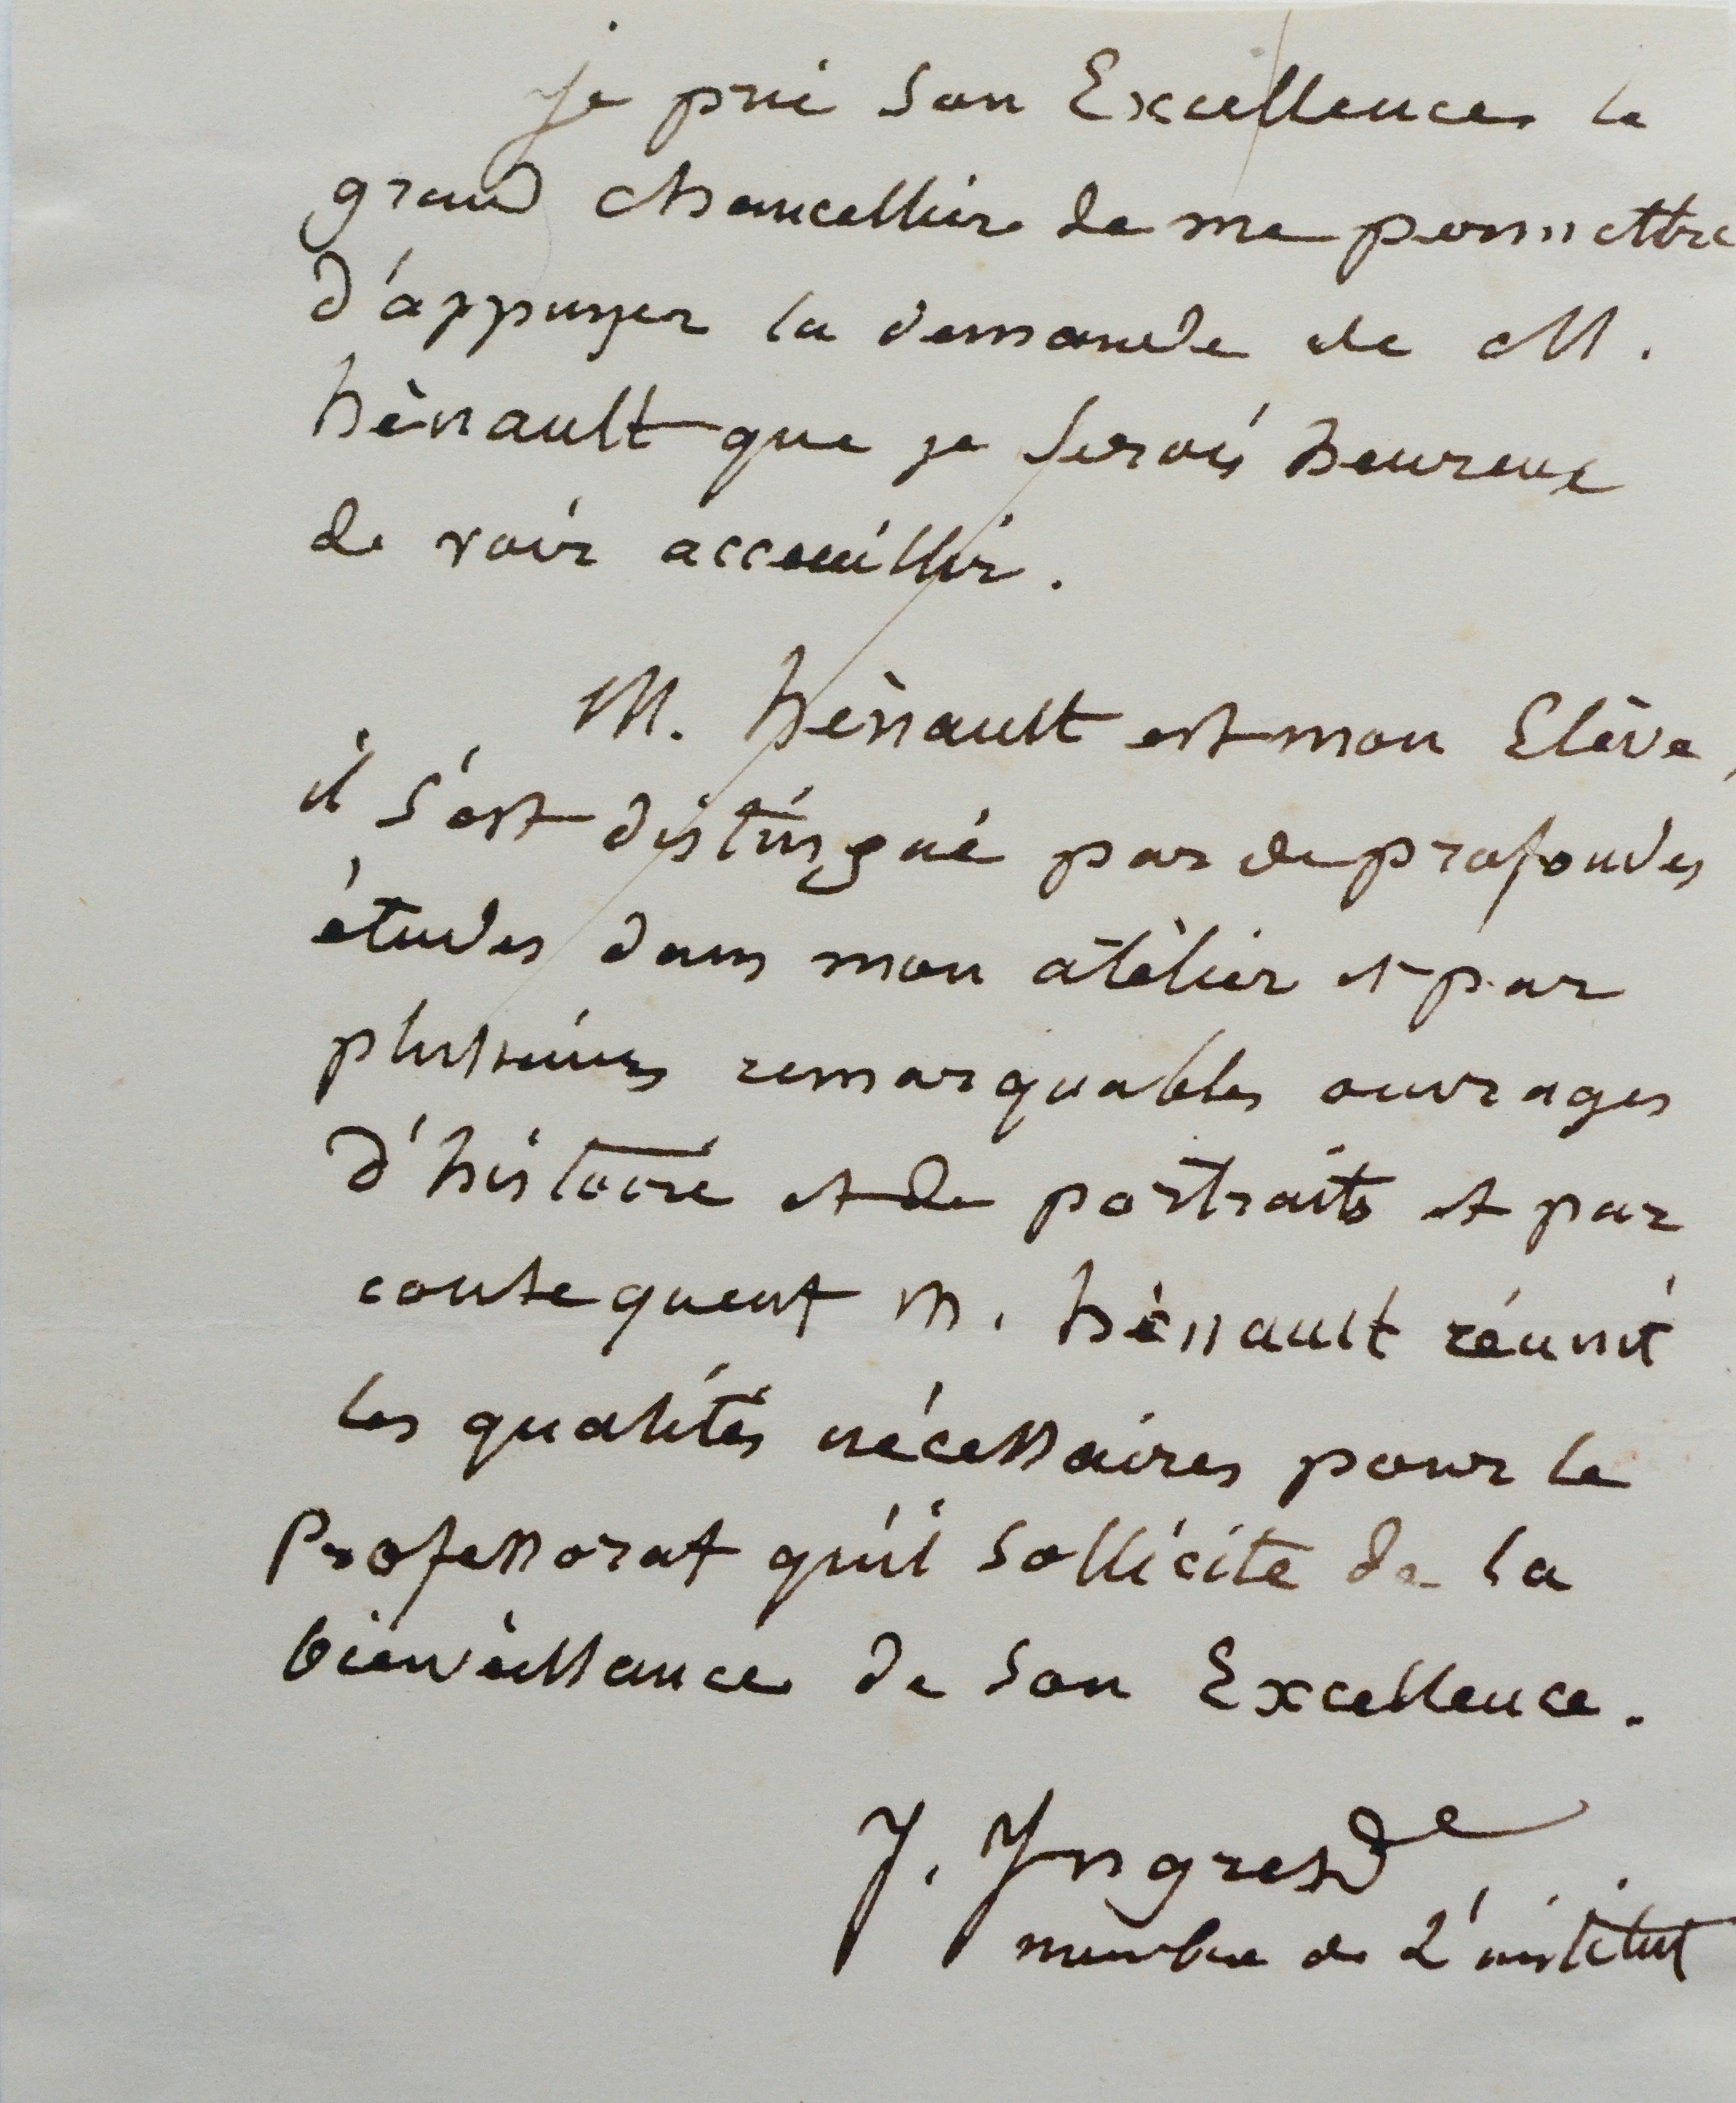 je prie Son Excellence le
grand chancellier de me permettre
d'appuyer la demande de M.
hènault que je serais heureux
de voir acceuillir.
M. hènault est mon Elève,
il s'est distingué par de profondes
études dans mon atèlier et par
plusieurs remarquables ouvrages
d'histoire et de portraits et par
consequent M. hènault réunit
les qualités nécessaires pour le
Professorat qu'il sollicite de la
bienvèillance de Son Excellence.
J. Ingres
membre de L'institut